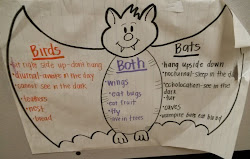 Birds
- sit right side up - dont hang
- diurnal - awake in the day
- cannot see in the dark
- feathers
- nest
- bread
Both
- wings
- eat bugs
- eat fruit
- fly
- live in trees
Bats
- hang upside down
- nocturnal - sleep in the day
- echolocation - see in the dark
- fur
- caves
- vampire bats eat blood